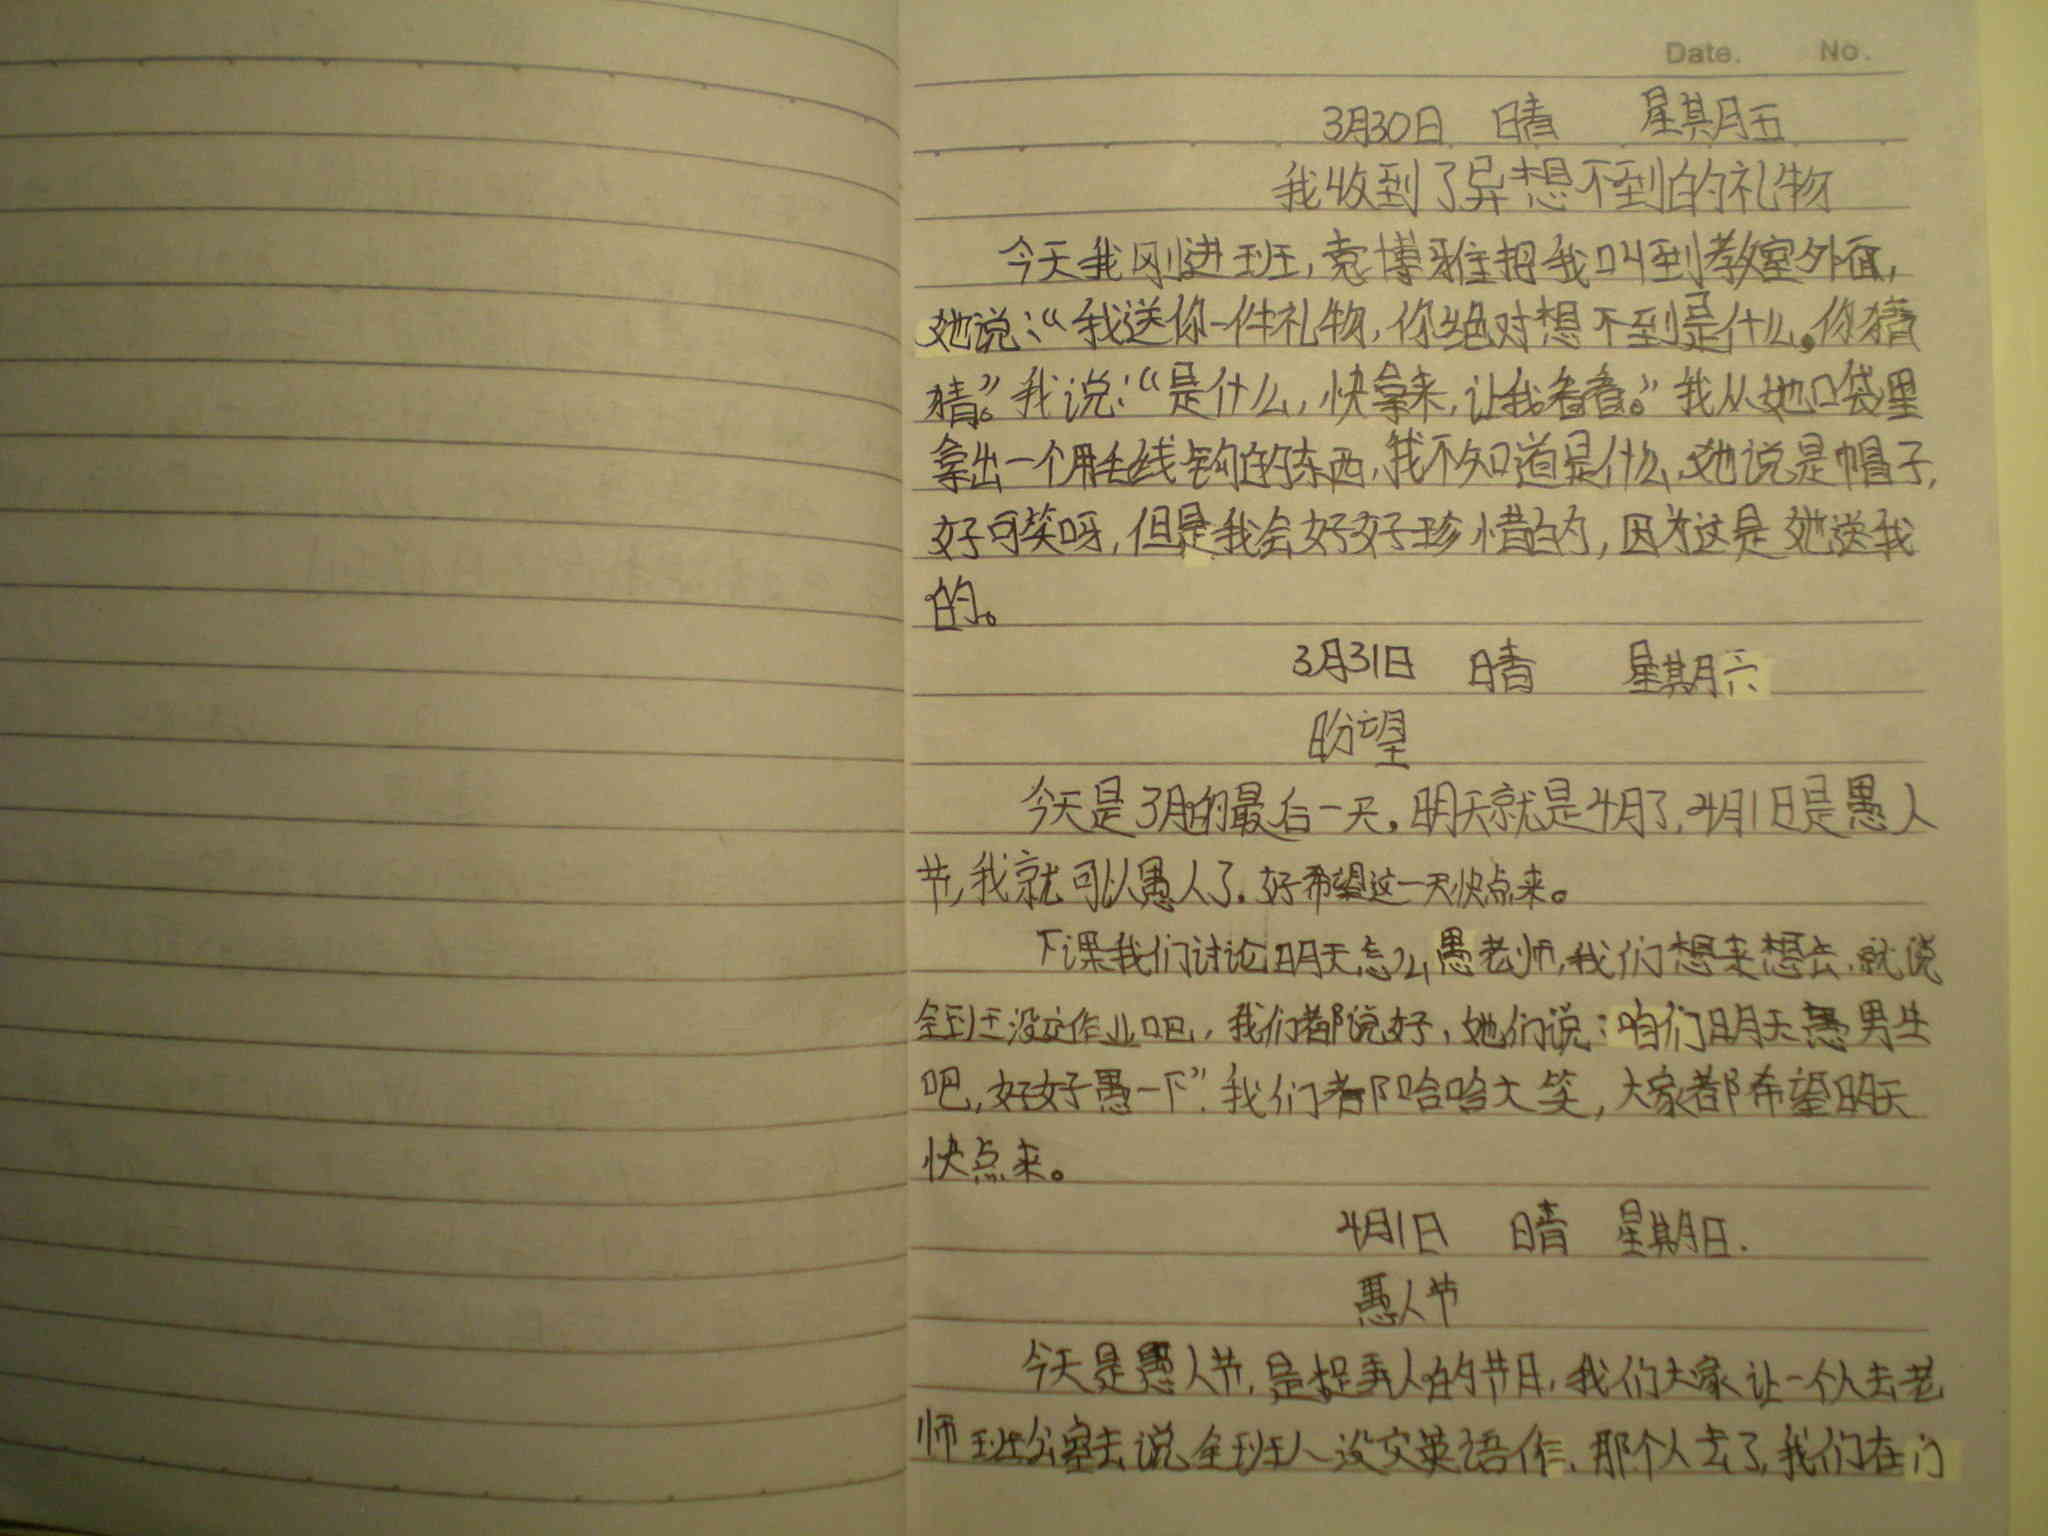 Date. No.
3月30日 晴 星期五
我收到了异想不到的礼物
今天我刚进班,袁博雅把我叫到教室外面,
她说:“我送你一件礼物,你绝对想不到是什么。你猜
猜。”我说:“是什么,快拿来,让我看看。”我从她口袋里
拿出一个用毛线钩的东西,我不知道是什么,她说是帽子,
好可笑呀,但是我会好好珍惜的,因为这是她送我
的。
3月31日 晴 星期六
盼望
今天是3月的最后一天。明天就是4月了,4月1日是愚人
节,我就可以愚人了.好希望这一天快点来。
下课我们讨论明天怎么愚老师,我们想来想去,就说
全班没交作业吧,我们都说好,她们说:咱们明天愚男生
吧,好好愚一下”.我们都哈哈大笑,大家都希望明天
快点来。
4月1日 晴 星期日.
愚人节
今天是愚人节,是捉弄人的节日,我们大家让一个人去老
师班公室去说全班人没交英语作,那个人去了,我们在门